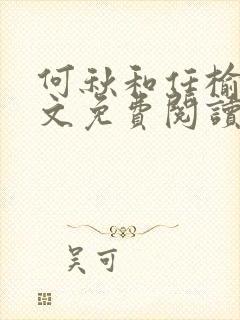 何秋和任榆
文免費閱讀
吴可